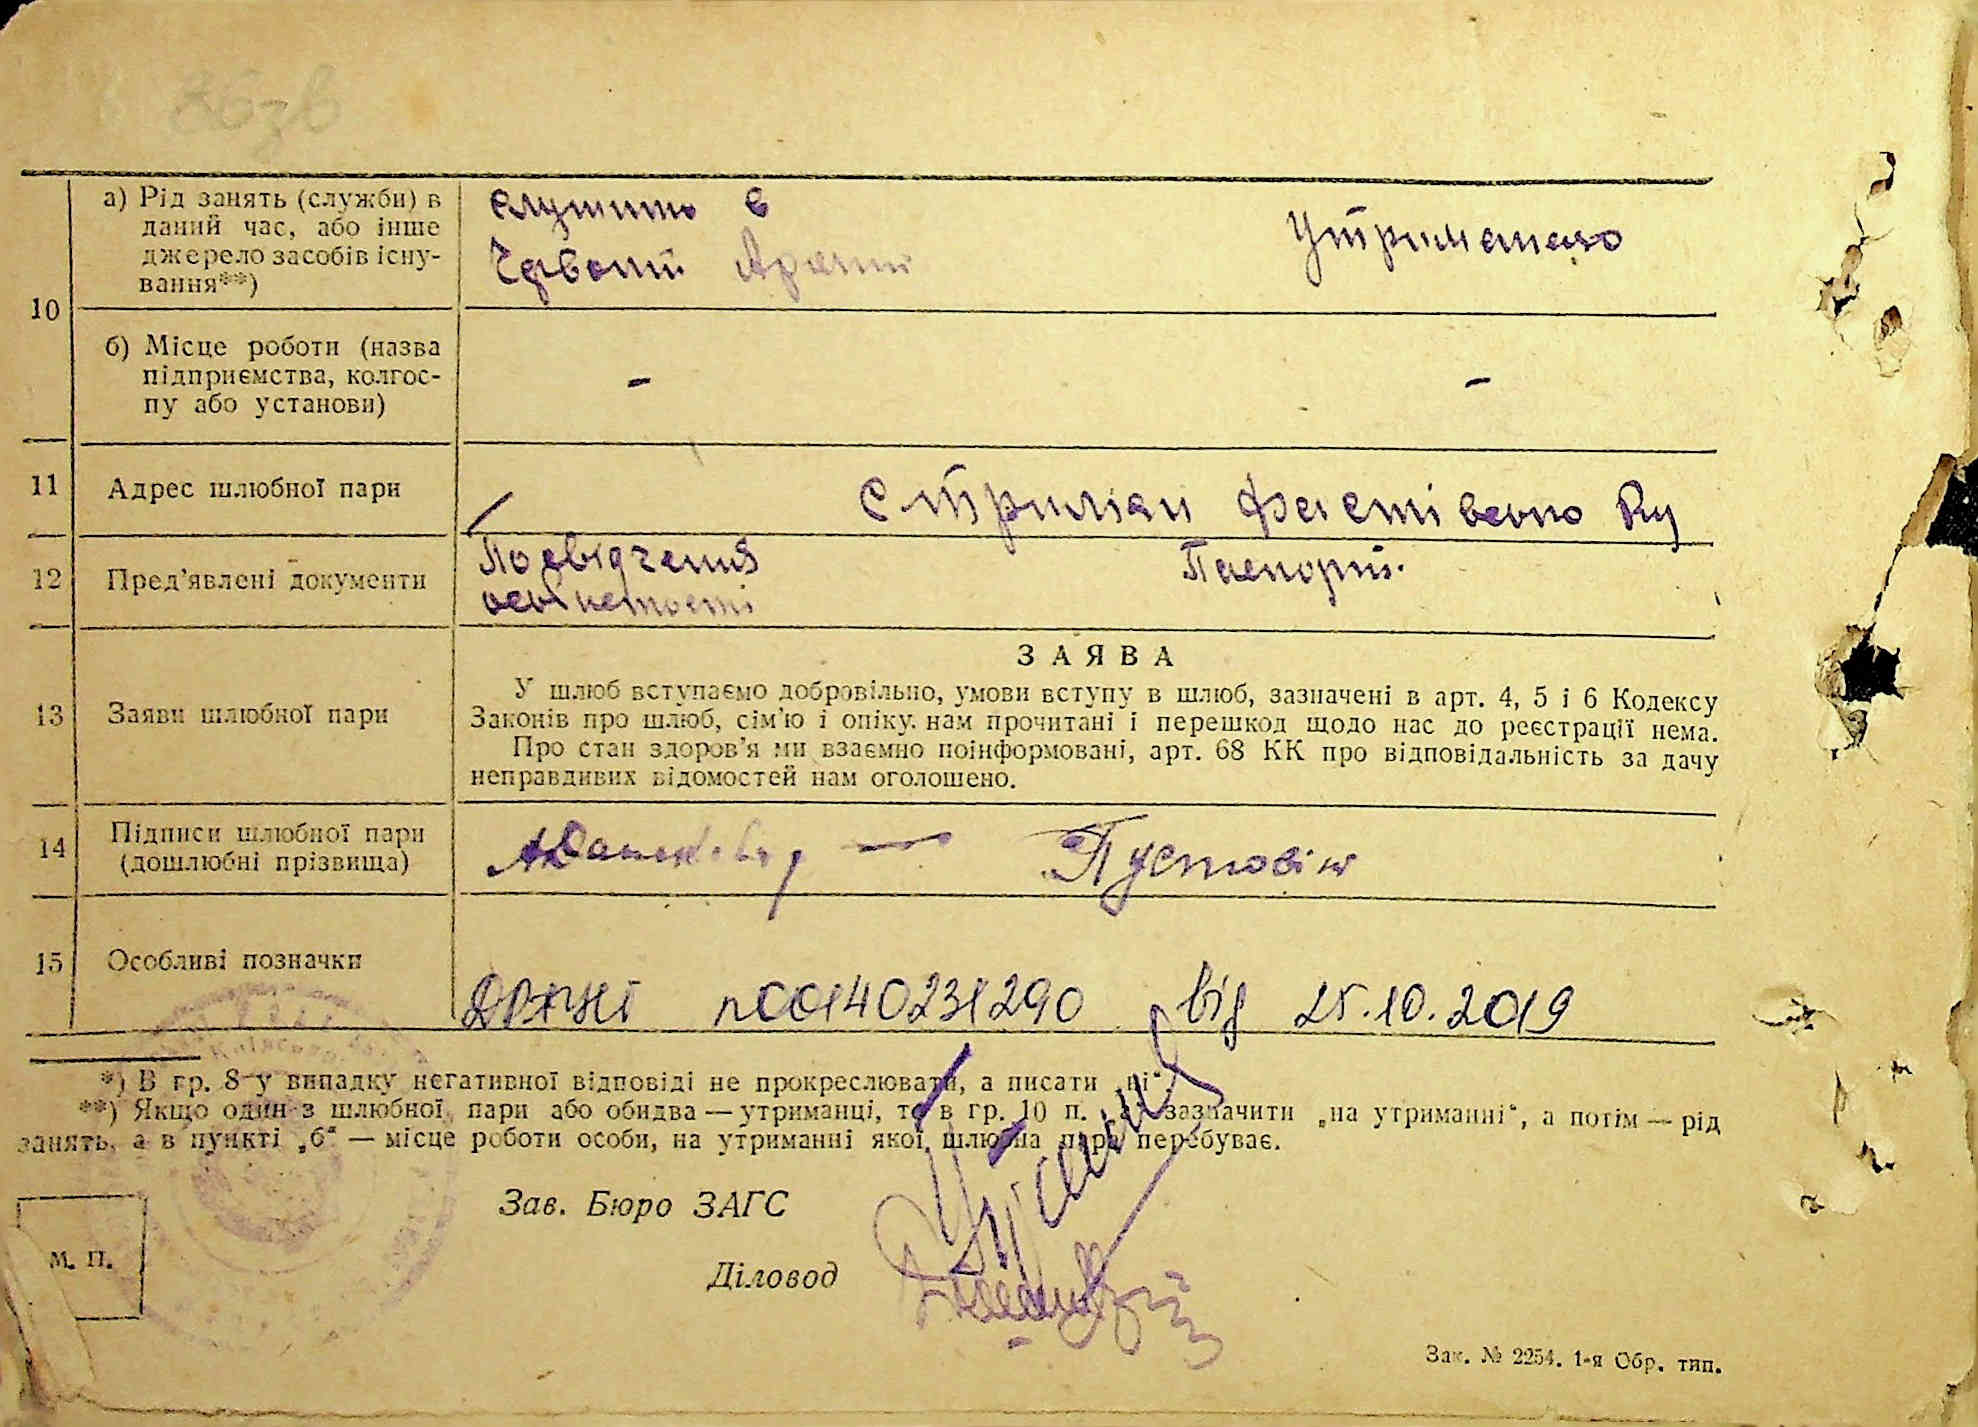 а) Рід занять (служби) в
даний час, або інше
джерело засобів існу-
вання**)
служить в
Червоній Армії
10
б) Місце роботи (назва
підприємства, колгос-
пу або установи)
-
-
11
Адрес шлюбної пари
12
Пред'явлені документи
Посвідчення
особистості
Паспорт.
ЗАЯВА
13
Заяви шлюбної пари
У шлюб вступаємо добровільно, умови вступу в шлюб, зазначені в арт. 4, 5 і 6 Кодексу
Законів про шлюб, сім'ю і опіку. нам прочитані і перешкод щодо нас до реєстрації нема.
Про стан здоров'я ми взаємно поінформовані, арт. 68 КК про відповідальність за дачу
неправдивих відомостей нам оголошено.
14
Підписи шлюбної пари
(дошлюбні прізвища)
Пустовіт
15
Особливі позначки
від 25.10.2019
*) В гр. 8 у випадку негативної відповіді не прокреслювати, а писати „ні“.
**) Якщо один з шлюбної пари або обидва — утриманці, то в гр. 10 п. „а“ зазначити „на утриманні“, а потім — рід
занять, а в пункті „б“ — місце роботи особи, на утриманні якої шлюбна пара перебуває.
Зав. Бюро ЗАГС
М. П.
Діловод
Зак. № 2254. 1-я Обр. тип.